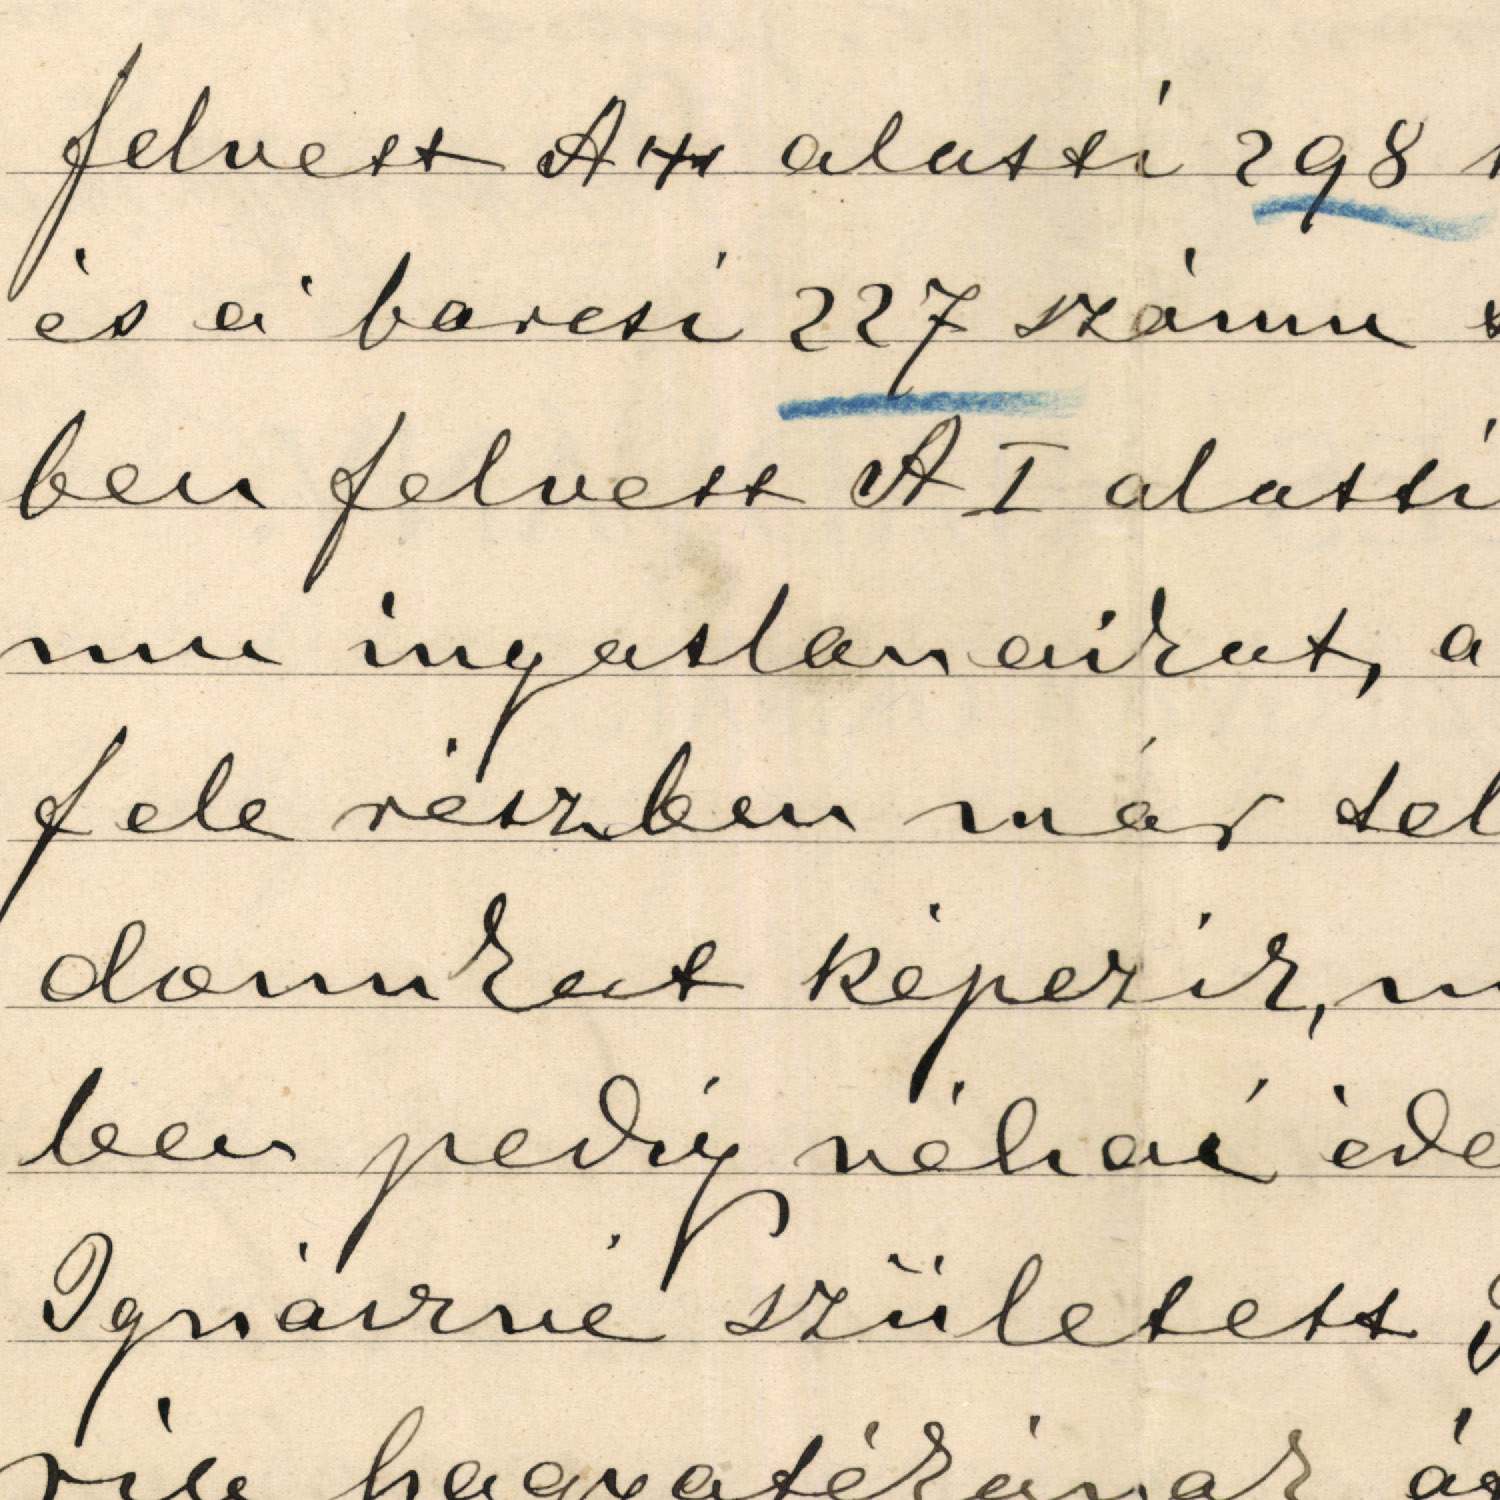 felvett A alatti 298
és a' barcsi 227 számu
ben felvett A I alatti
mu ingatlanaikat, a
fele részben már tel
domukat képezik, m
ben pedig néhai éde
Ignáczné született
rile hagyatékának